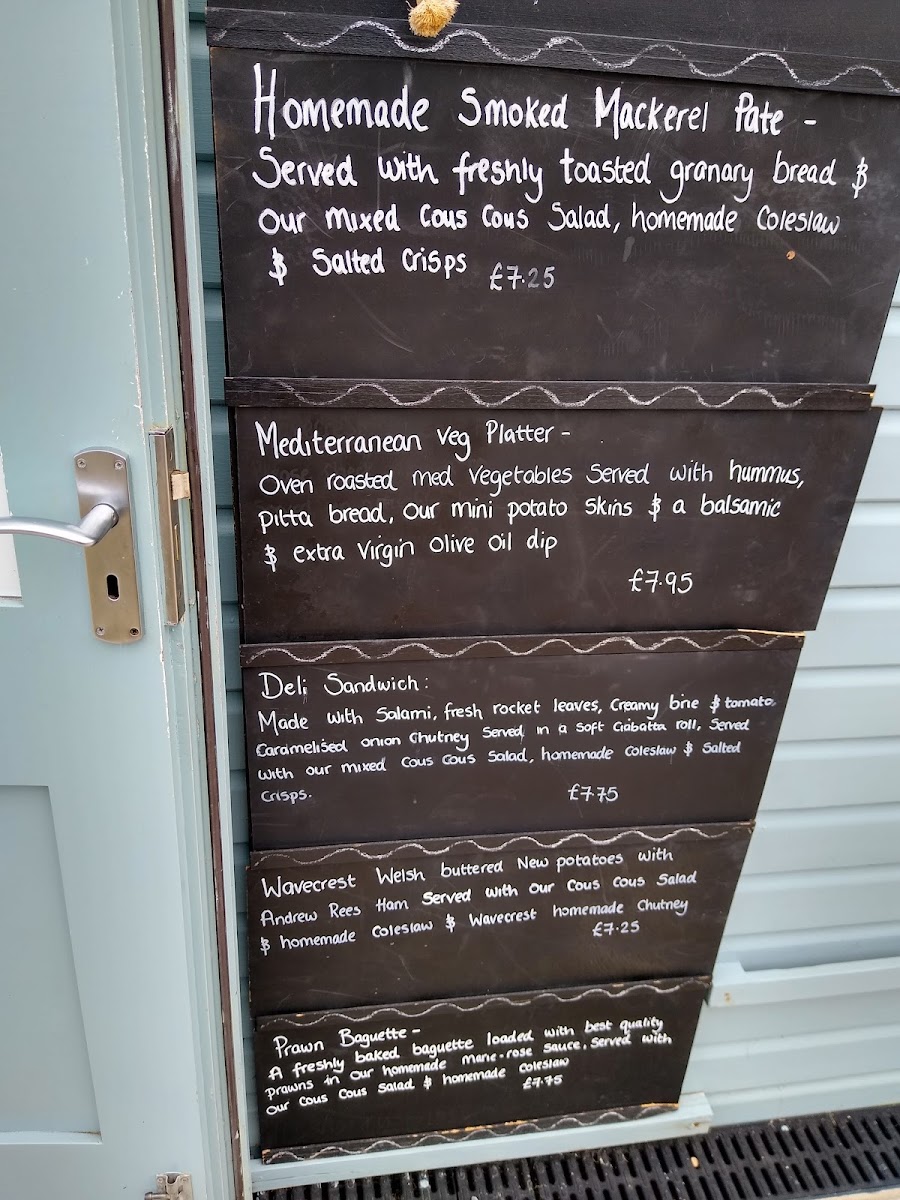 Homemade Smoked Mackerel Pate -
Served with freshly toasted granary bread &
our mixed Cous Cous Salad, homemade Coleslaw
& Salted Crisps £7.25
Mediterranean Veg Platter -
Oven roasted med vegetables Served with hummus,
Pitta bread, our mini potato Skins & a balsamic
& extra Virgin Olive oil dip
£7.95
Deli Sandwich:
Made with Salami, fresh rocket leaves, Creamy brie & tomato,
Caramelised onion Chutney Served in a Soft Ciabatta roll, Served
with our mixed Cous Cous Salad, homemade Coleslaw & Salted
Crisps. £7.75
Wavecrest Welsh buttered New potatoes with
Andrew Rees Ham Served with our Cous Cous Salad
& homemade Coleslaw & Wavecrest homemade Chutney
£7.25
Prawn Baguette -
A freshly baked baguette loaded with best quality
prawns in our homemade marie-rose sauce. Served with
our Cous Cous Salad & homemade Coleslaw
£7.75